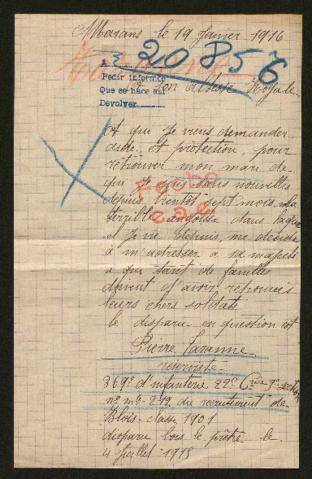 Marans le 19 Janvier 1916
20856
A 3
Pedir informes
Que se hace así
Devolver
Son Altesse Royale
et qui je viens demander
aide et protection pour
retrouver mon mari de
qui je suis sans nouvelles
depuis bientôt sept mois. La
terrible angoisse dans laquelle
je vis depuis, me décide
à m'adresser a sa majesté
a qui tant de familles
doivent d'avoir retrouvés
leurs chers soldats
le disparu en question est
Pierre
réserviste
369e d'infanterie 22e Cie
no mle 212 du recrutement de
Blois classe 1901
disparu bois le prêtre le
4 Juillet 1915